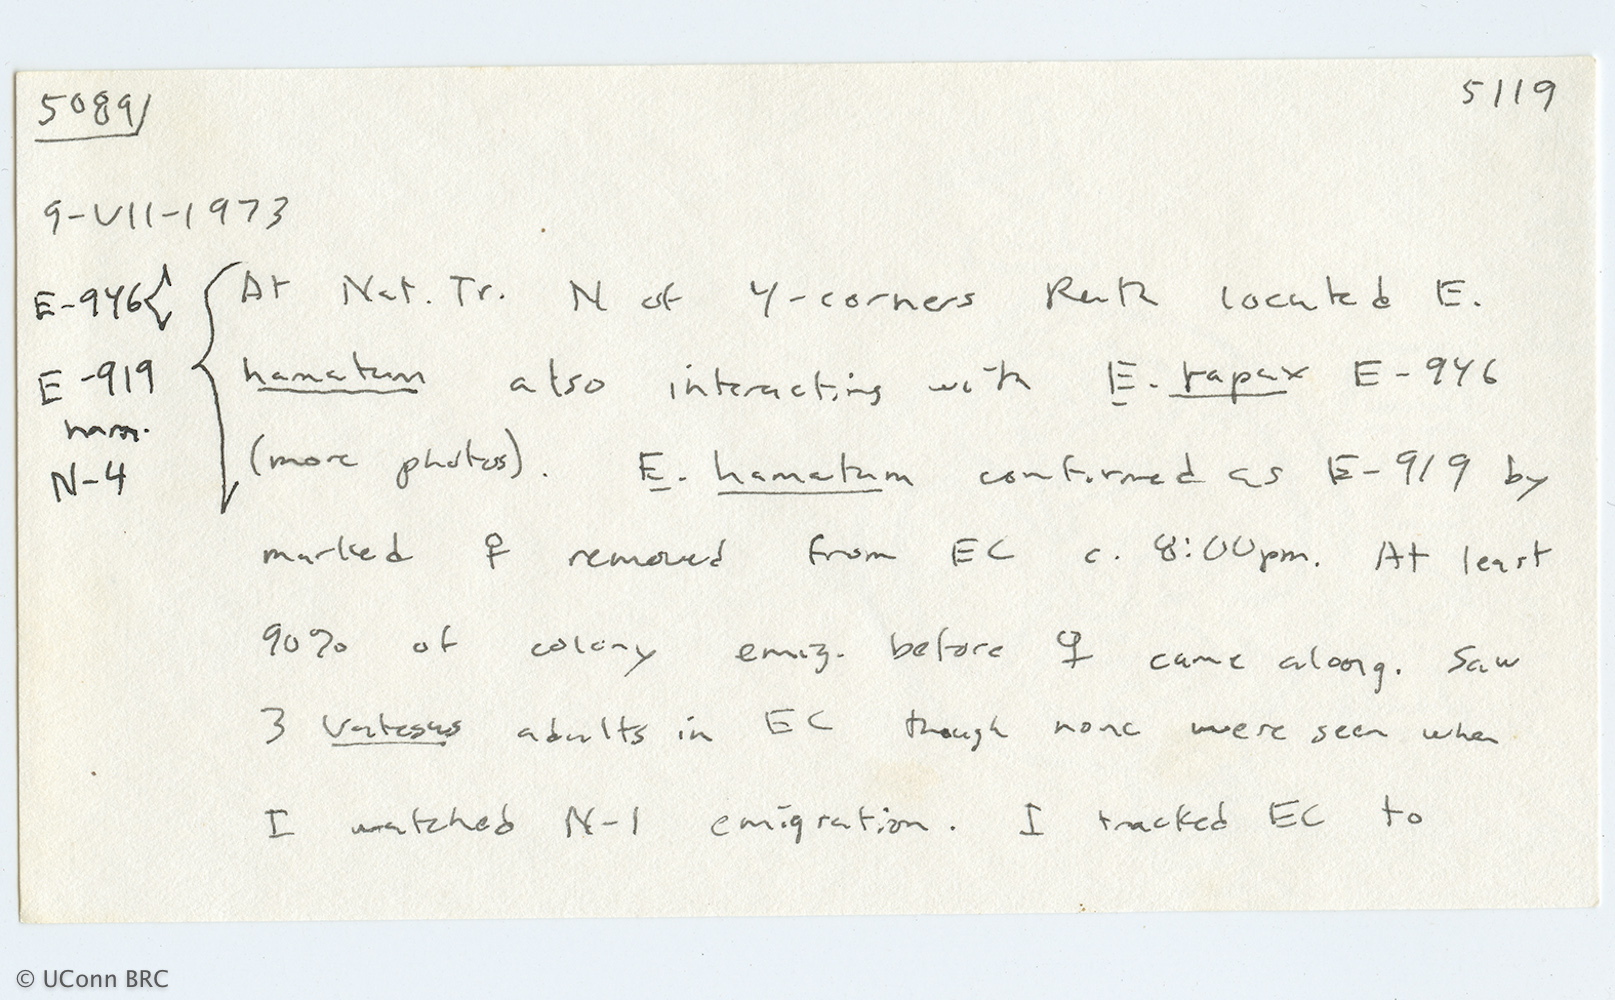 5089/
5119
9-VII-1973
E-946
E-919
ham.
N-4
At Nat. Tr. N of 4-corners Ruth located E.
hamatum also interacting with E. rapax E-946
(more photos). E. hamatum confirmed as E-919 by
marked ♀ removed from EC c. 8:00pm. At least
90% of colony emig. before ♀ came along. Saw
3 Vatesus adults in EC though none were seen when
I watched N-1 emigration. I tracked EC to
© UConn BRC